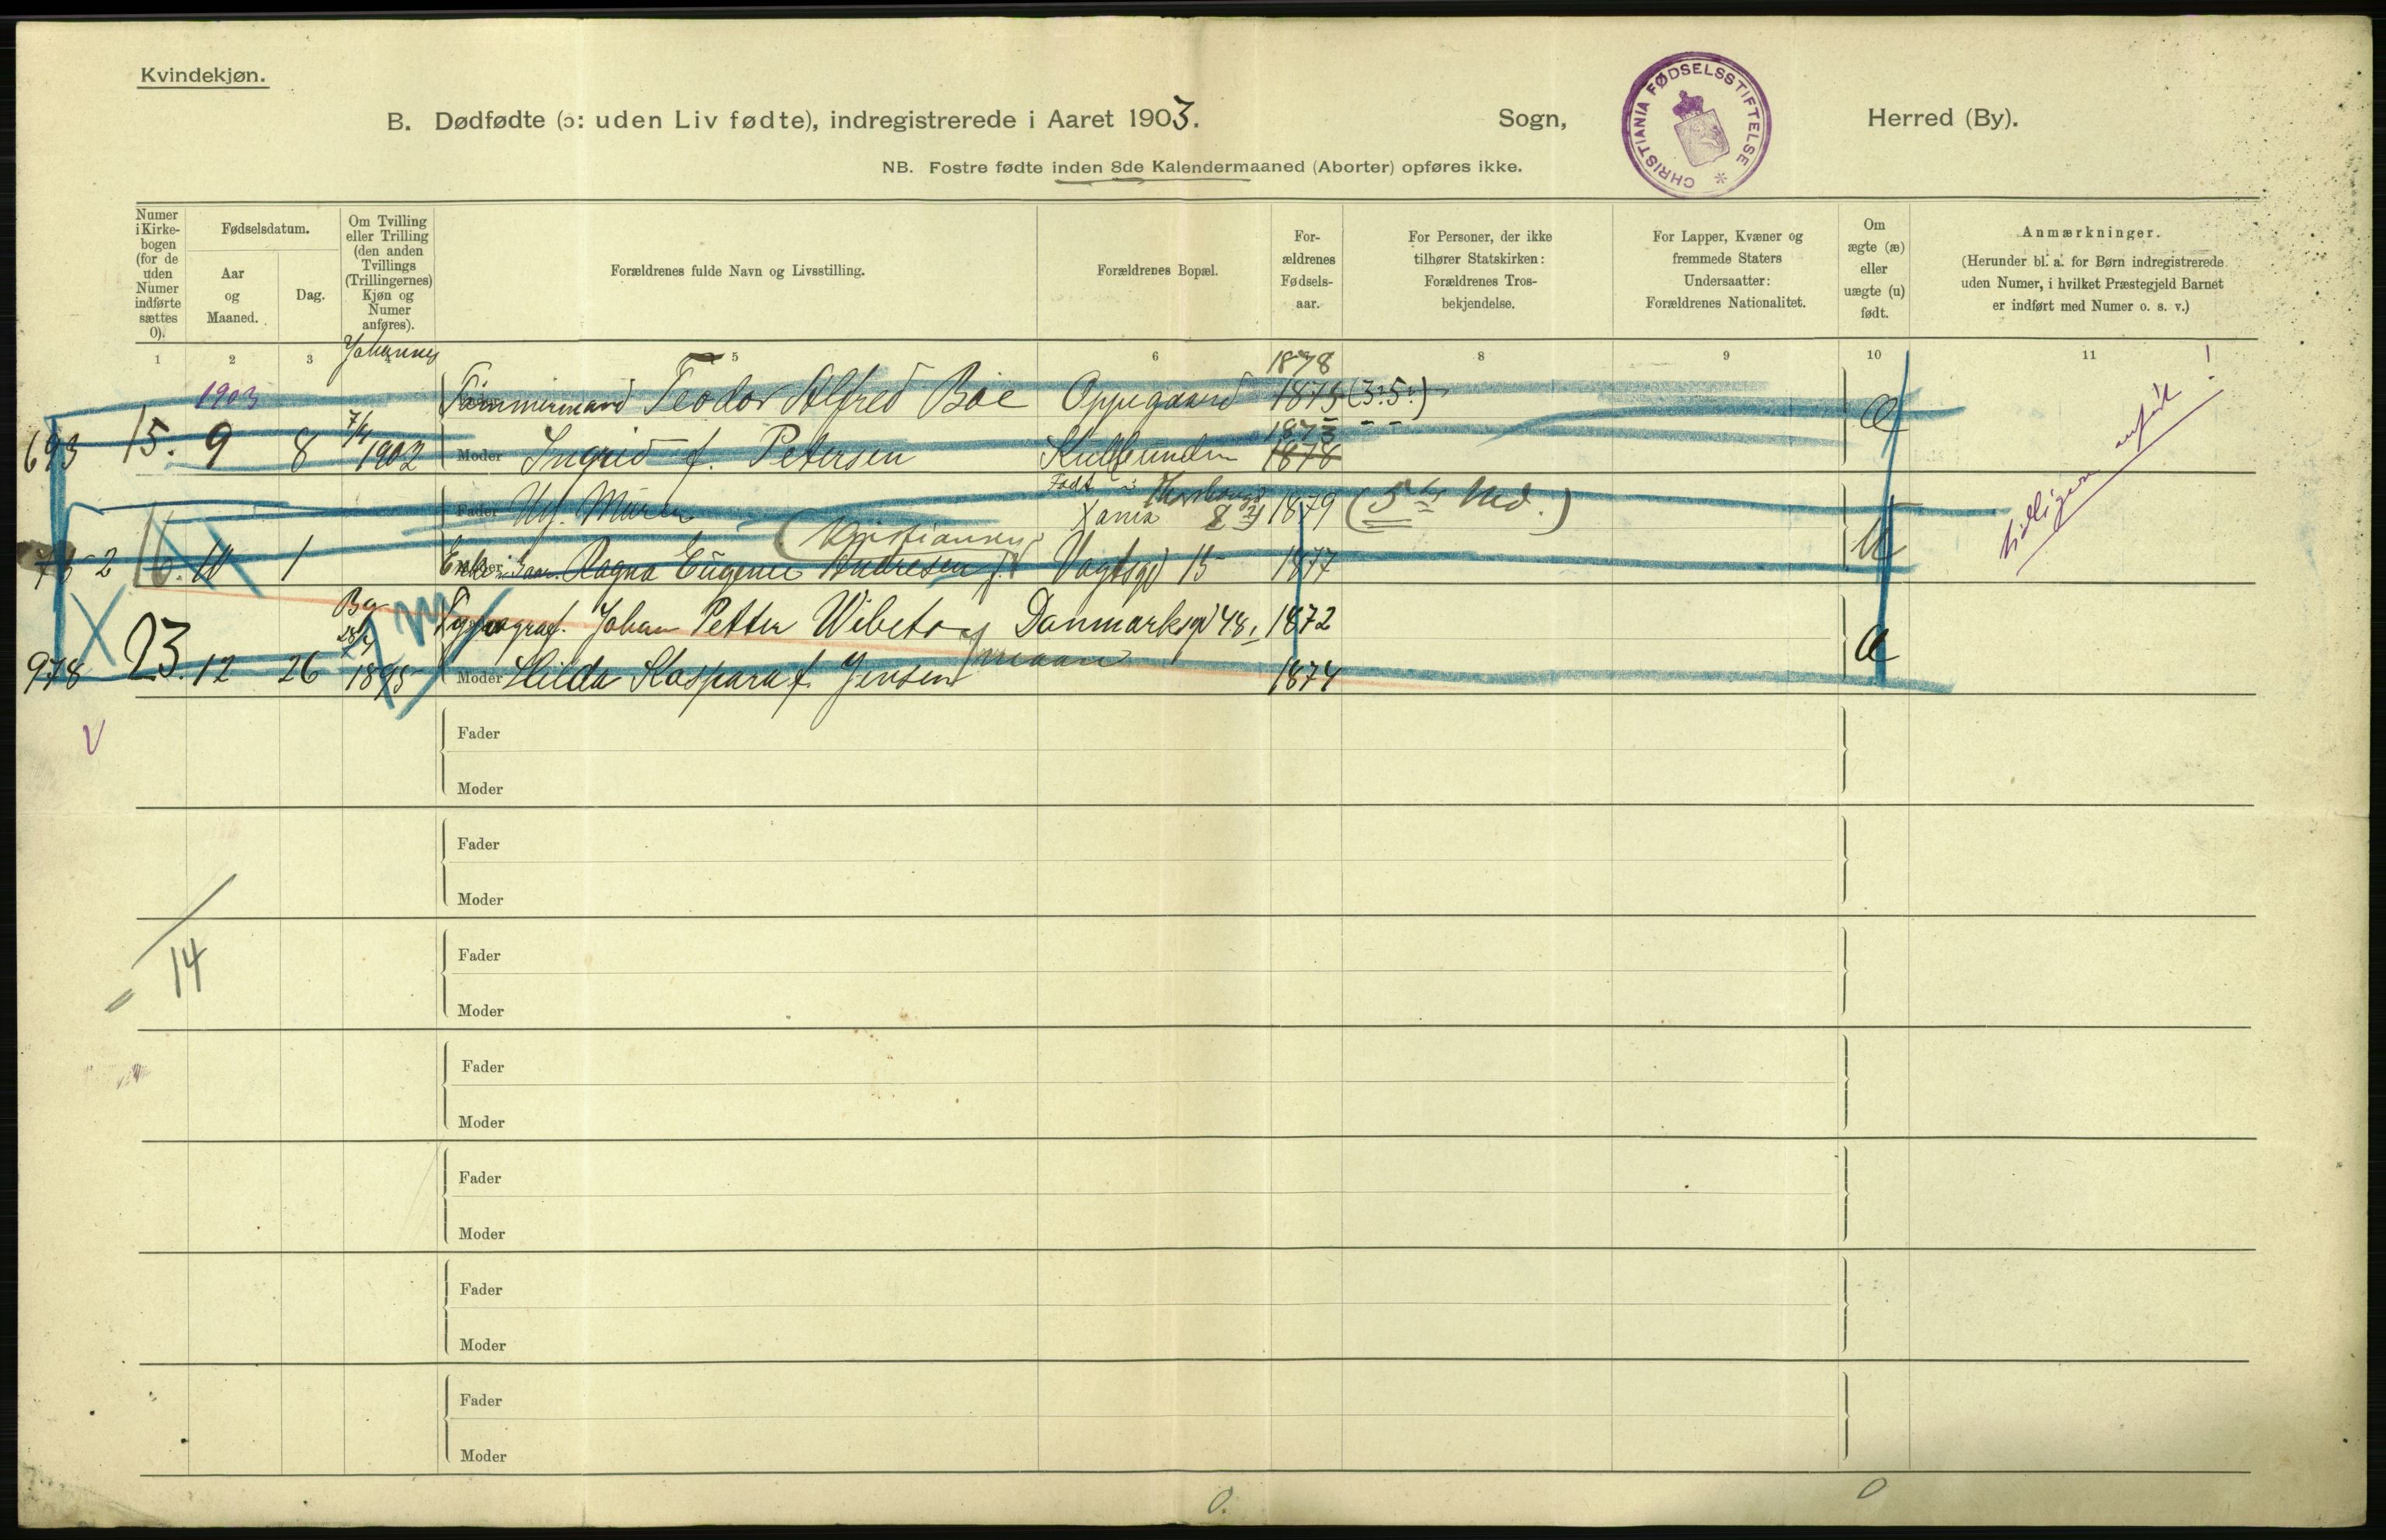 Kvindekjøn.
B. Dødfødte (ɔ: uden Liv fødte), indregistrerede i Aaret 1903. Sogn, Herred (By).
CHRISTIANIA FØDSELSSTIFTELSE *
NB. Fostre fødte inden 8de Kalendermaaned (Aborter) opføres ikke.
Numer i Kirke-bogen (for de uden Numer indførte sættes 0).
Fødselsdatum.
Aar og Maaned.
Dag.
Om Tvilling eller Trilling (den anden Tvillings (Trillingernes) Kjøn og Numer anføres).
Forældrenes fulde Navn og Livsstilling.
Forældrenes Bopæl.
For-ældrenes Fødsels-aar.
For Personer, der ikke tilhører Statskirken: Forældrenes Tros-bekjendelse.
For Lapper, Kvæner og fremmede Staters Undersaatter: Forældrenes Nationalitet.
Om ægte (æ) eller uægte (u) født.
Anmærkninger.
(Herunder bl. a. for Børn indregistrerede uden Numer, i hvilket Præstegjeld Barnet er indført med Numer o. s. v.)
1 2 3 5 6 8 9 10 11
Johannes 1878
1903 Tømmermand Teodor Alfred Boe Oppegaard 1875 (3:5:)
693 15. 9 8 7/4 1902 Moder Ingrid f. Petersen Kullebunden 1873 1878 æ
Fader Ug. Murer Født Xania 8/4 1879 (5te Md.)
(Kristiansen)
2 16. 10 1 Enke Ragna Eugenie Andresen f. Vogtsgd 15 1877 u
tidligere anført!
Bg 28/4 Typograf. Johan Petter Wibeto Danmarksgd 48, 1872
978 23. 12 26 1895 Moder Hilda Kaspara f. Jensen 1874 æ
Fader
Moder
Fader
Moder
14
Fader
Moder
Fader
Moder
Fader
Moder
Fader
Moder
Fader
Moder
0. 0